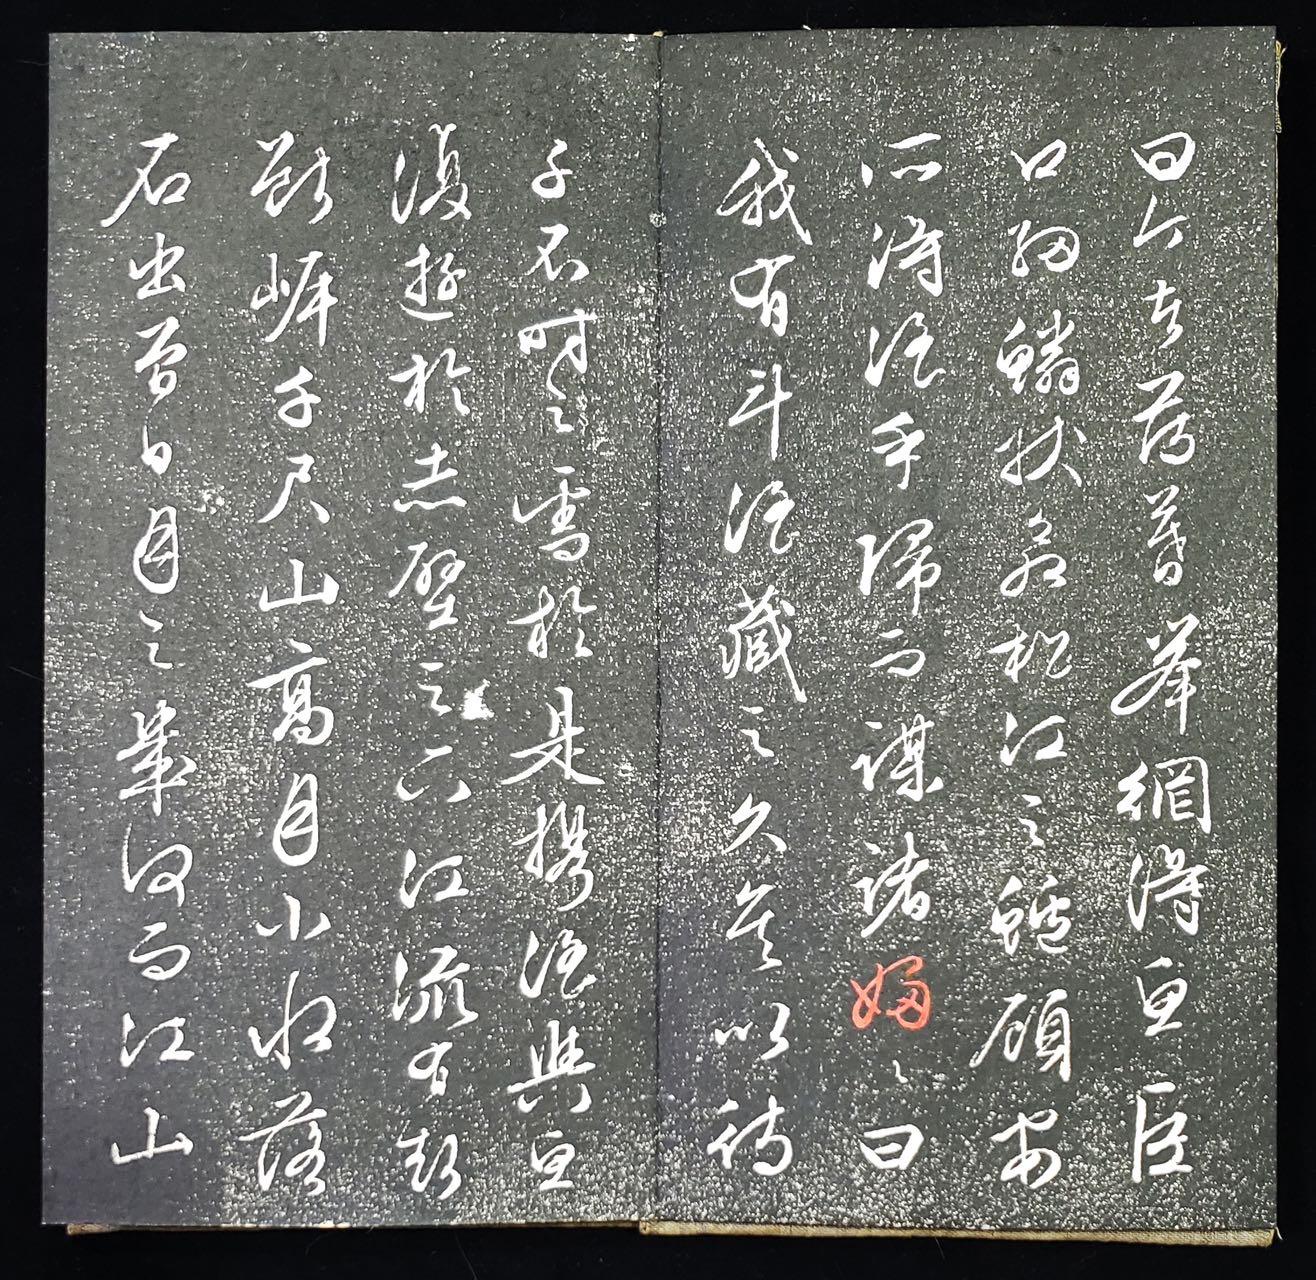 曰今者薄暮舉網得魚巨
口細鱗狀如松江之鱸顧安
所得酒乎歸而謀諸婦〻曰
我有斗酒藏之久矣以待
子不時之需於是攜酒與魚
復遊於赤壁之下江流有聲
斷岸千尺山高月小水落
石出曾日月之幾何而江山